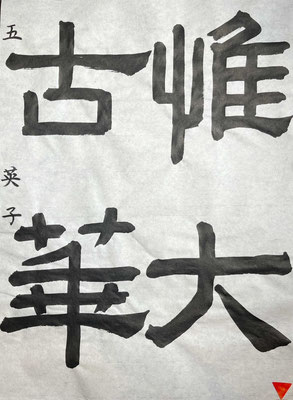 惟大
古華
五 英子